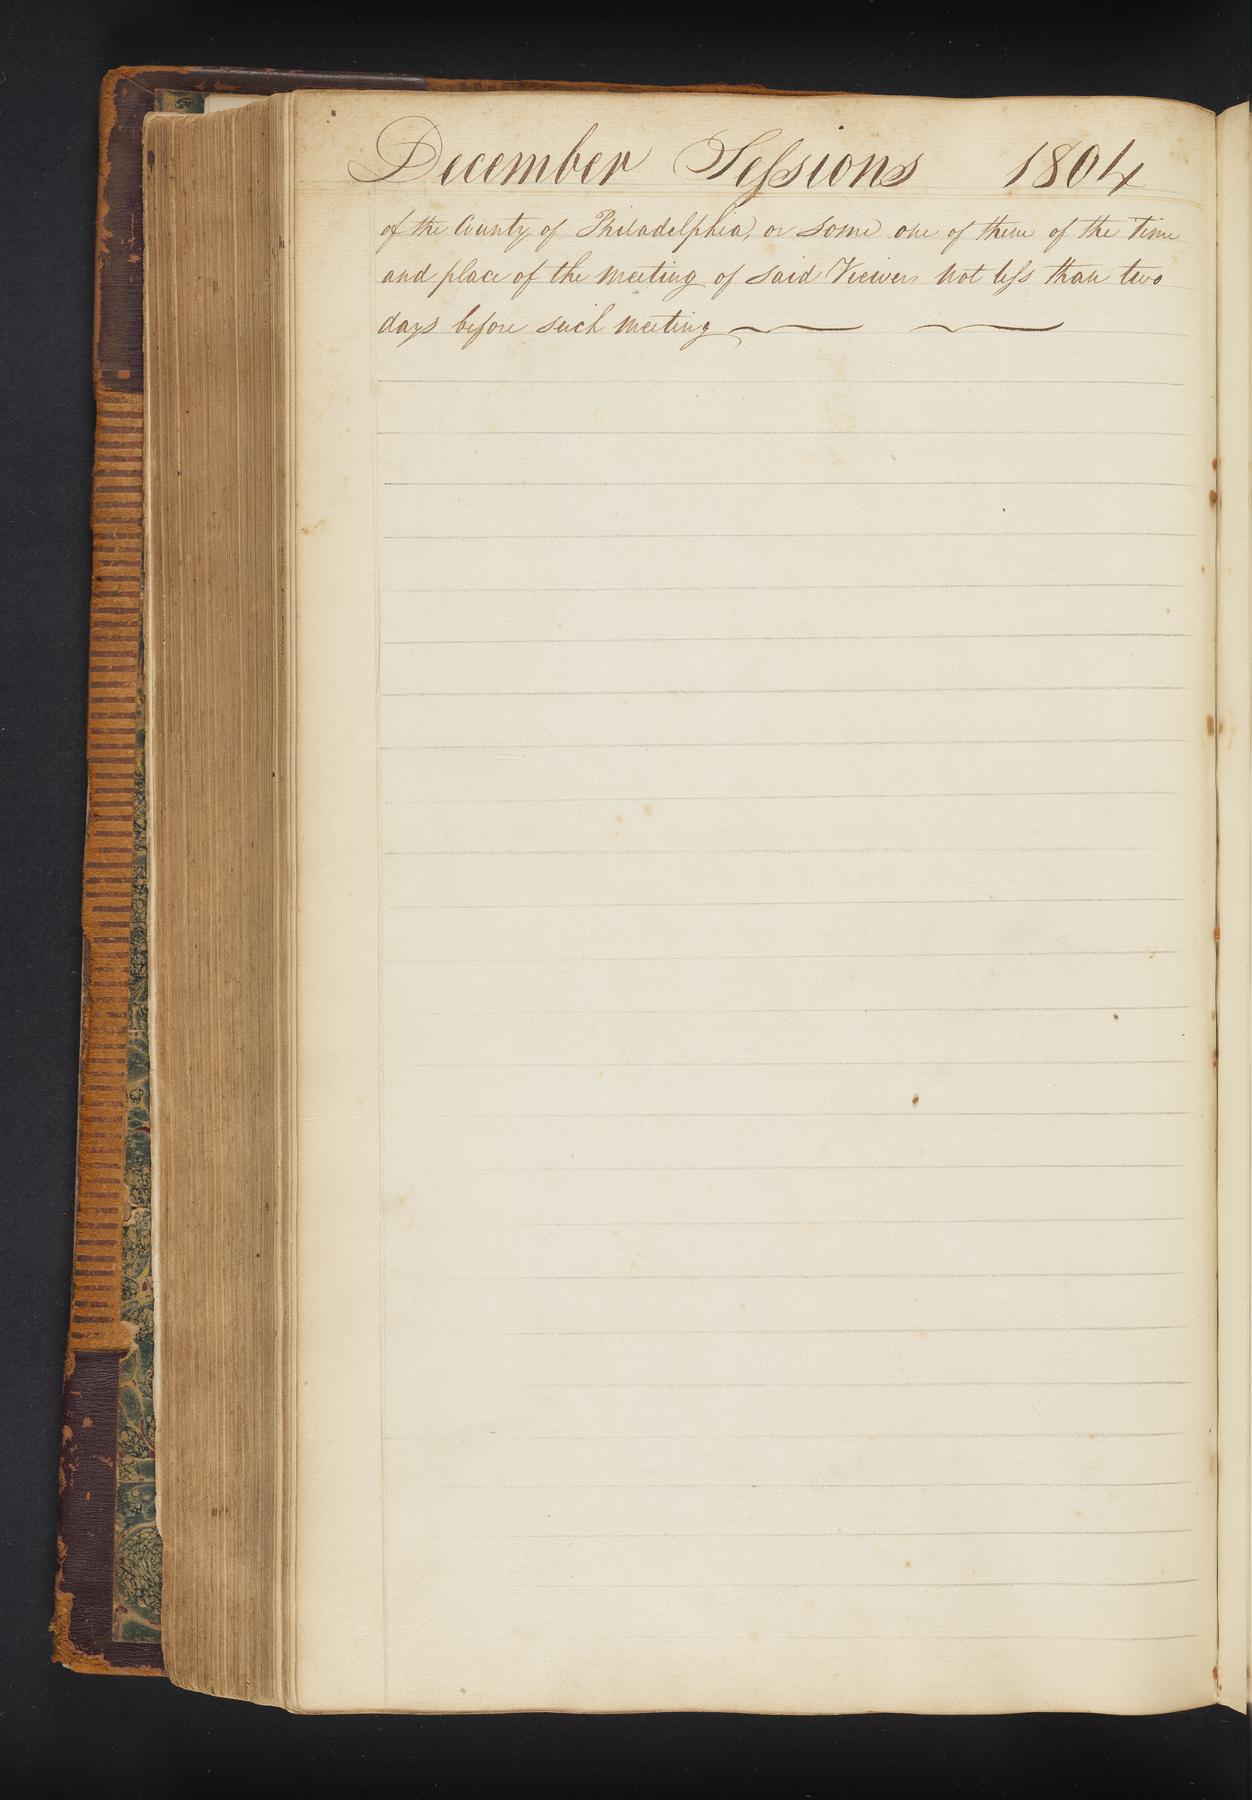 December Sessions 1804
of the County of Philadelphia, or some one of them of the time
and place of the meeting of said Viewers not less than two
days before such meeting